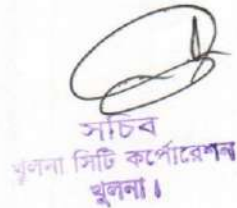 সচিব
খুলনা সিটি কর্পোরেশন
খুলনা।